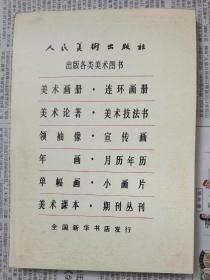 人民美術出版社
出版各类美术图书
美术画册·连环画册
美术论著·美术技法书
领袖像·宣传画
年画·月历年历
单幅画·小画片
美术课本·期刊丛刊
全国新华书店发行